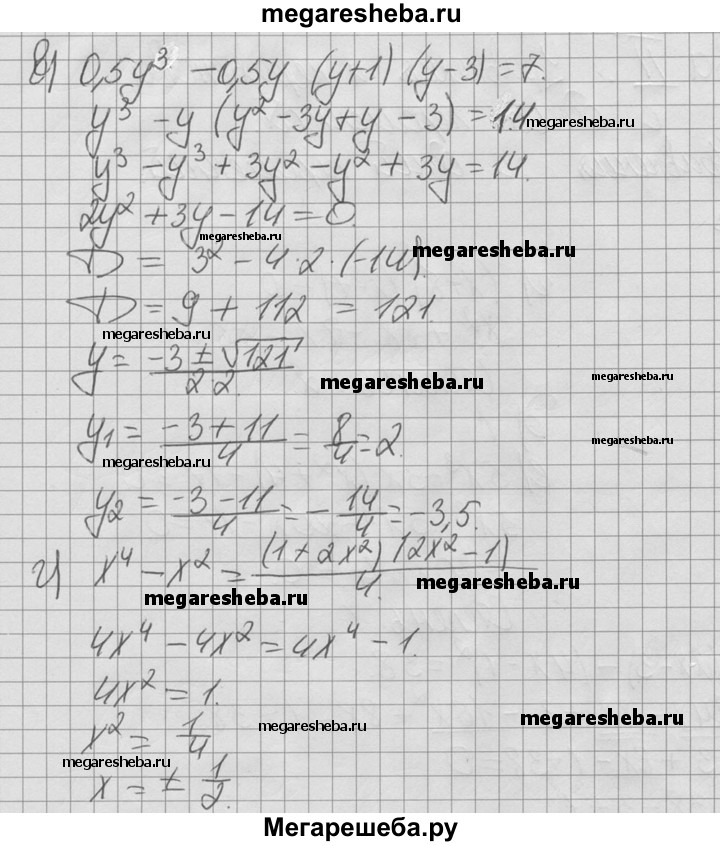 megaresheba.ru
в) 0,5y³ - 0,5y (y+1) (y-3) = 7.
y³ - y (y² - 3y + y - 3) = 14 megaresheba.ru
y³ - y³ + 3y² - y² + 3y = 14.
2y² + 3y - 14 = 0.
megaresheba.ru megaresheba.ru
D = 3² - 4·2·(-14).
D = 9 + 112 = 121
megaresheba.ru
y = (-3 ± √121)/(2·2) megaresheba.ru megaresheba.ru
y₁ = (-3 + 11)/4 = 8/4 = 2. megaresheba.ru
megaresheba.ru
y₂ = (-3 - 11)/4 = - 14/4 = -3,5.
г) x⁴ - x² = (1 + 2x²) (2x² - 1)/4.
megaresheba.ru megaresheba.ru
4x⁴ - 4x² = 4x⁴ - 1.
4x² = 1.
x² = 1/4 megaresheba.ru megaresheba.ru
megaresheba.ru
x = ± 1/2.
Мегарешеба.ру